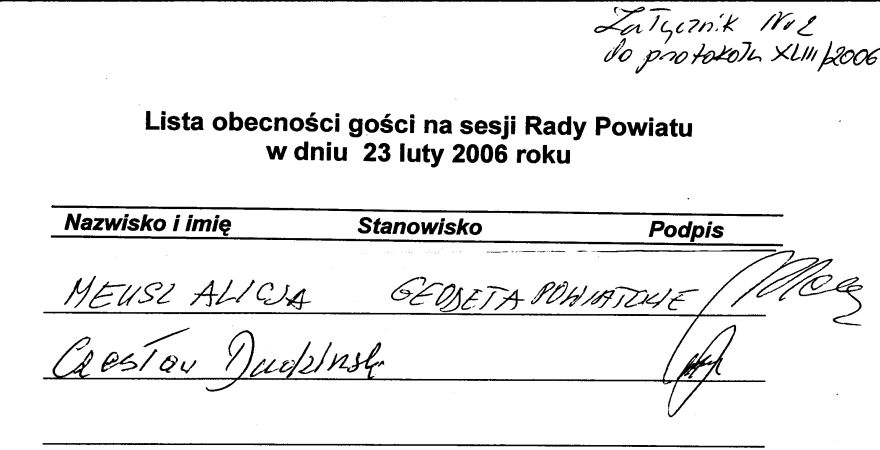 Załącznik Nr 2
do protokołu XLIII/2006
Lista obecności gości na sesji Rady Powiatu
w dniu 23 luty 2006 roku
Nazwisko i imię Stanowisko Podpis
ALICJA GEODETA
Czesław Dudziński